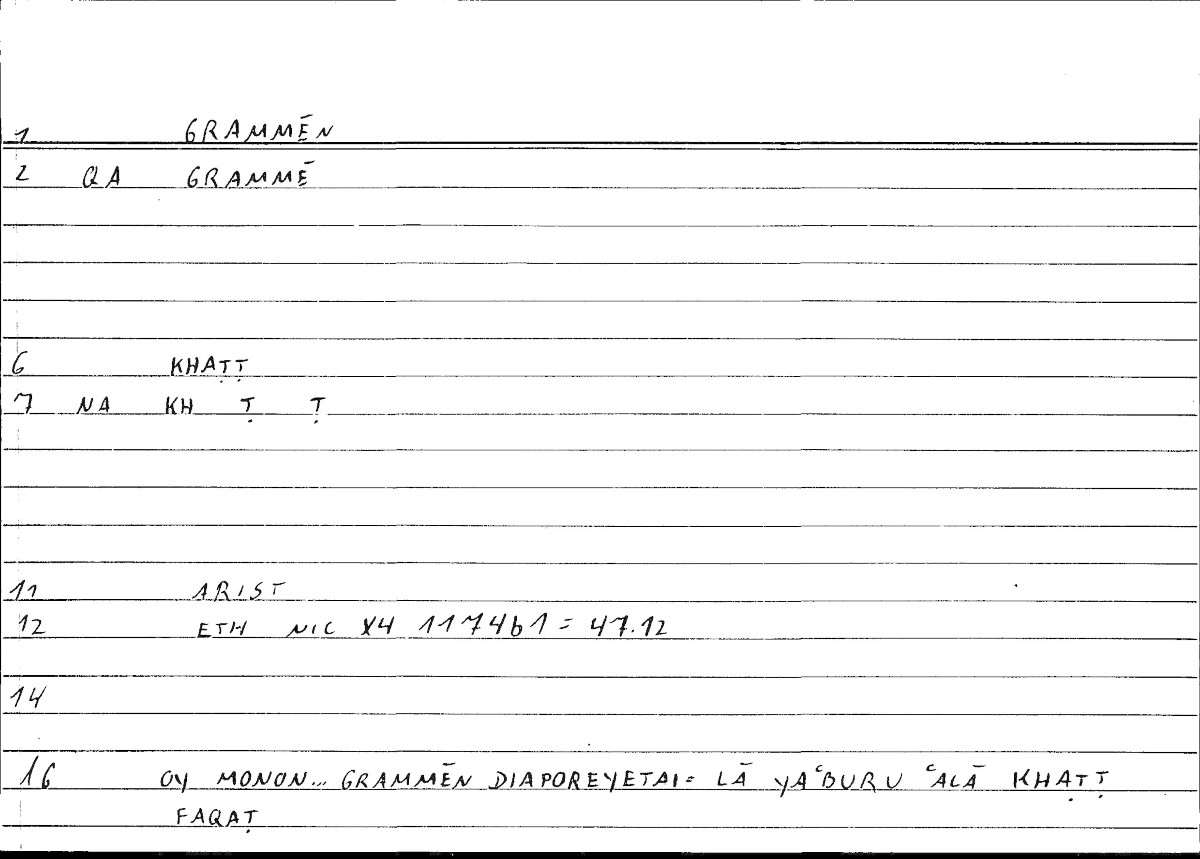 1 GRAMMĒN
2 QA GRAMMĒ
6 KHAṬṬ
7 NA KH Ṭ Ṭ
11 ARIST
12 ETH NIC X4 1174b1 = 47.12
14
16 OY MONON... GRAMMĒN DIAPOREYETAI = LĀ YAʿBURU ʿALĀ KHAṬṬ
FAQAṬ